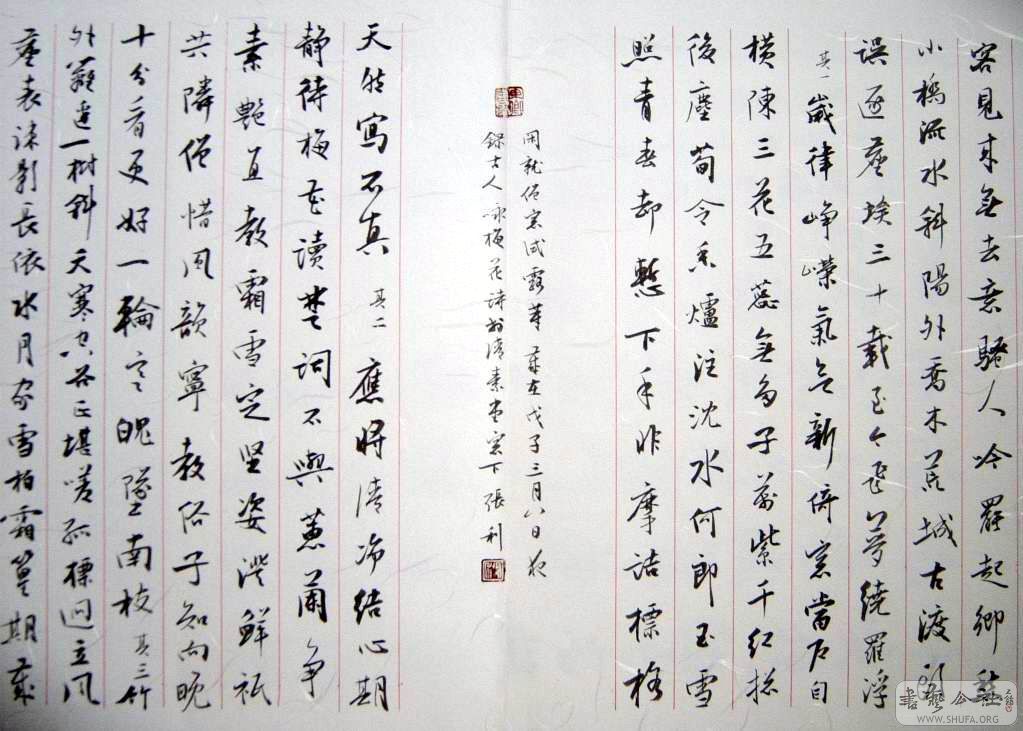 客見來無去意騷人吟罷起鄉愁
小橋流水斜陽外喬木荒城古渡頭
誤逐塵埃三十載至今飛夢繞羅浮
其一 歲律崢嶸氣象新倚窓當户自
橫陳三花五蕊無多子萬紫千紅拜
後塵荀令香爐注沈水何郎玉雪
照青春却慙下手非摩詰標格
閑就低窓試露芽 歲在戊子三月八日夜
錄古人詠梅花詩於清素書窓下 張利
天然寫不真 其二 應時清淨結心期
靜待梅花讀楚詞不與蕙蘭争
素艷直教霜雪定堅姿澹鮮祇
共隣僧惜風韻寧教俗子知向晚
十分看更好一輪寒魄墜南枝 其三 竹
外籬邊一樹斜天寒空谷正堪嗟孤標迥立風
塵表疎影長依水月家雪柏霜篁期歲
書藝公社
WWW.SHUFA.ORG